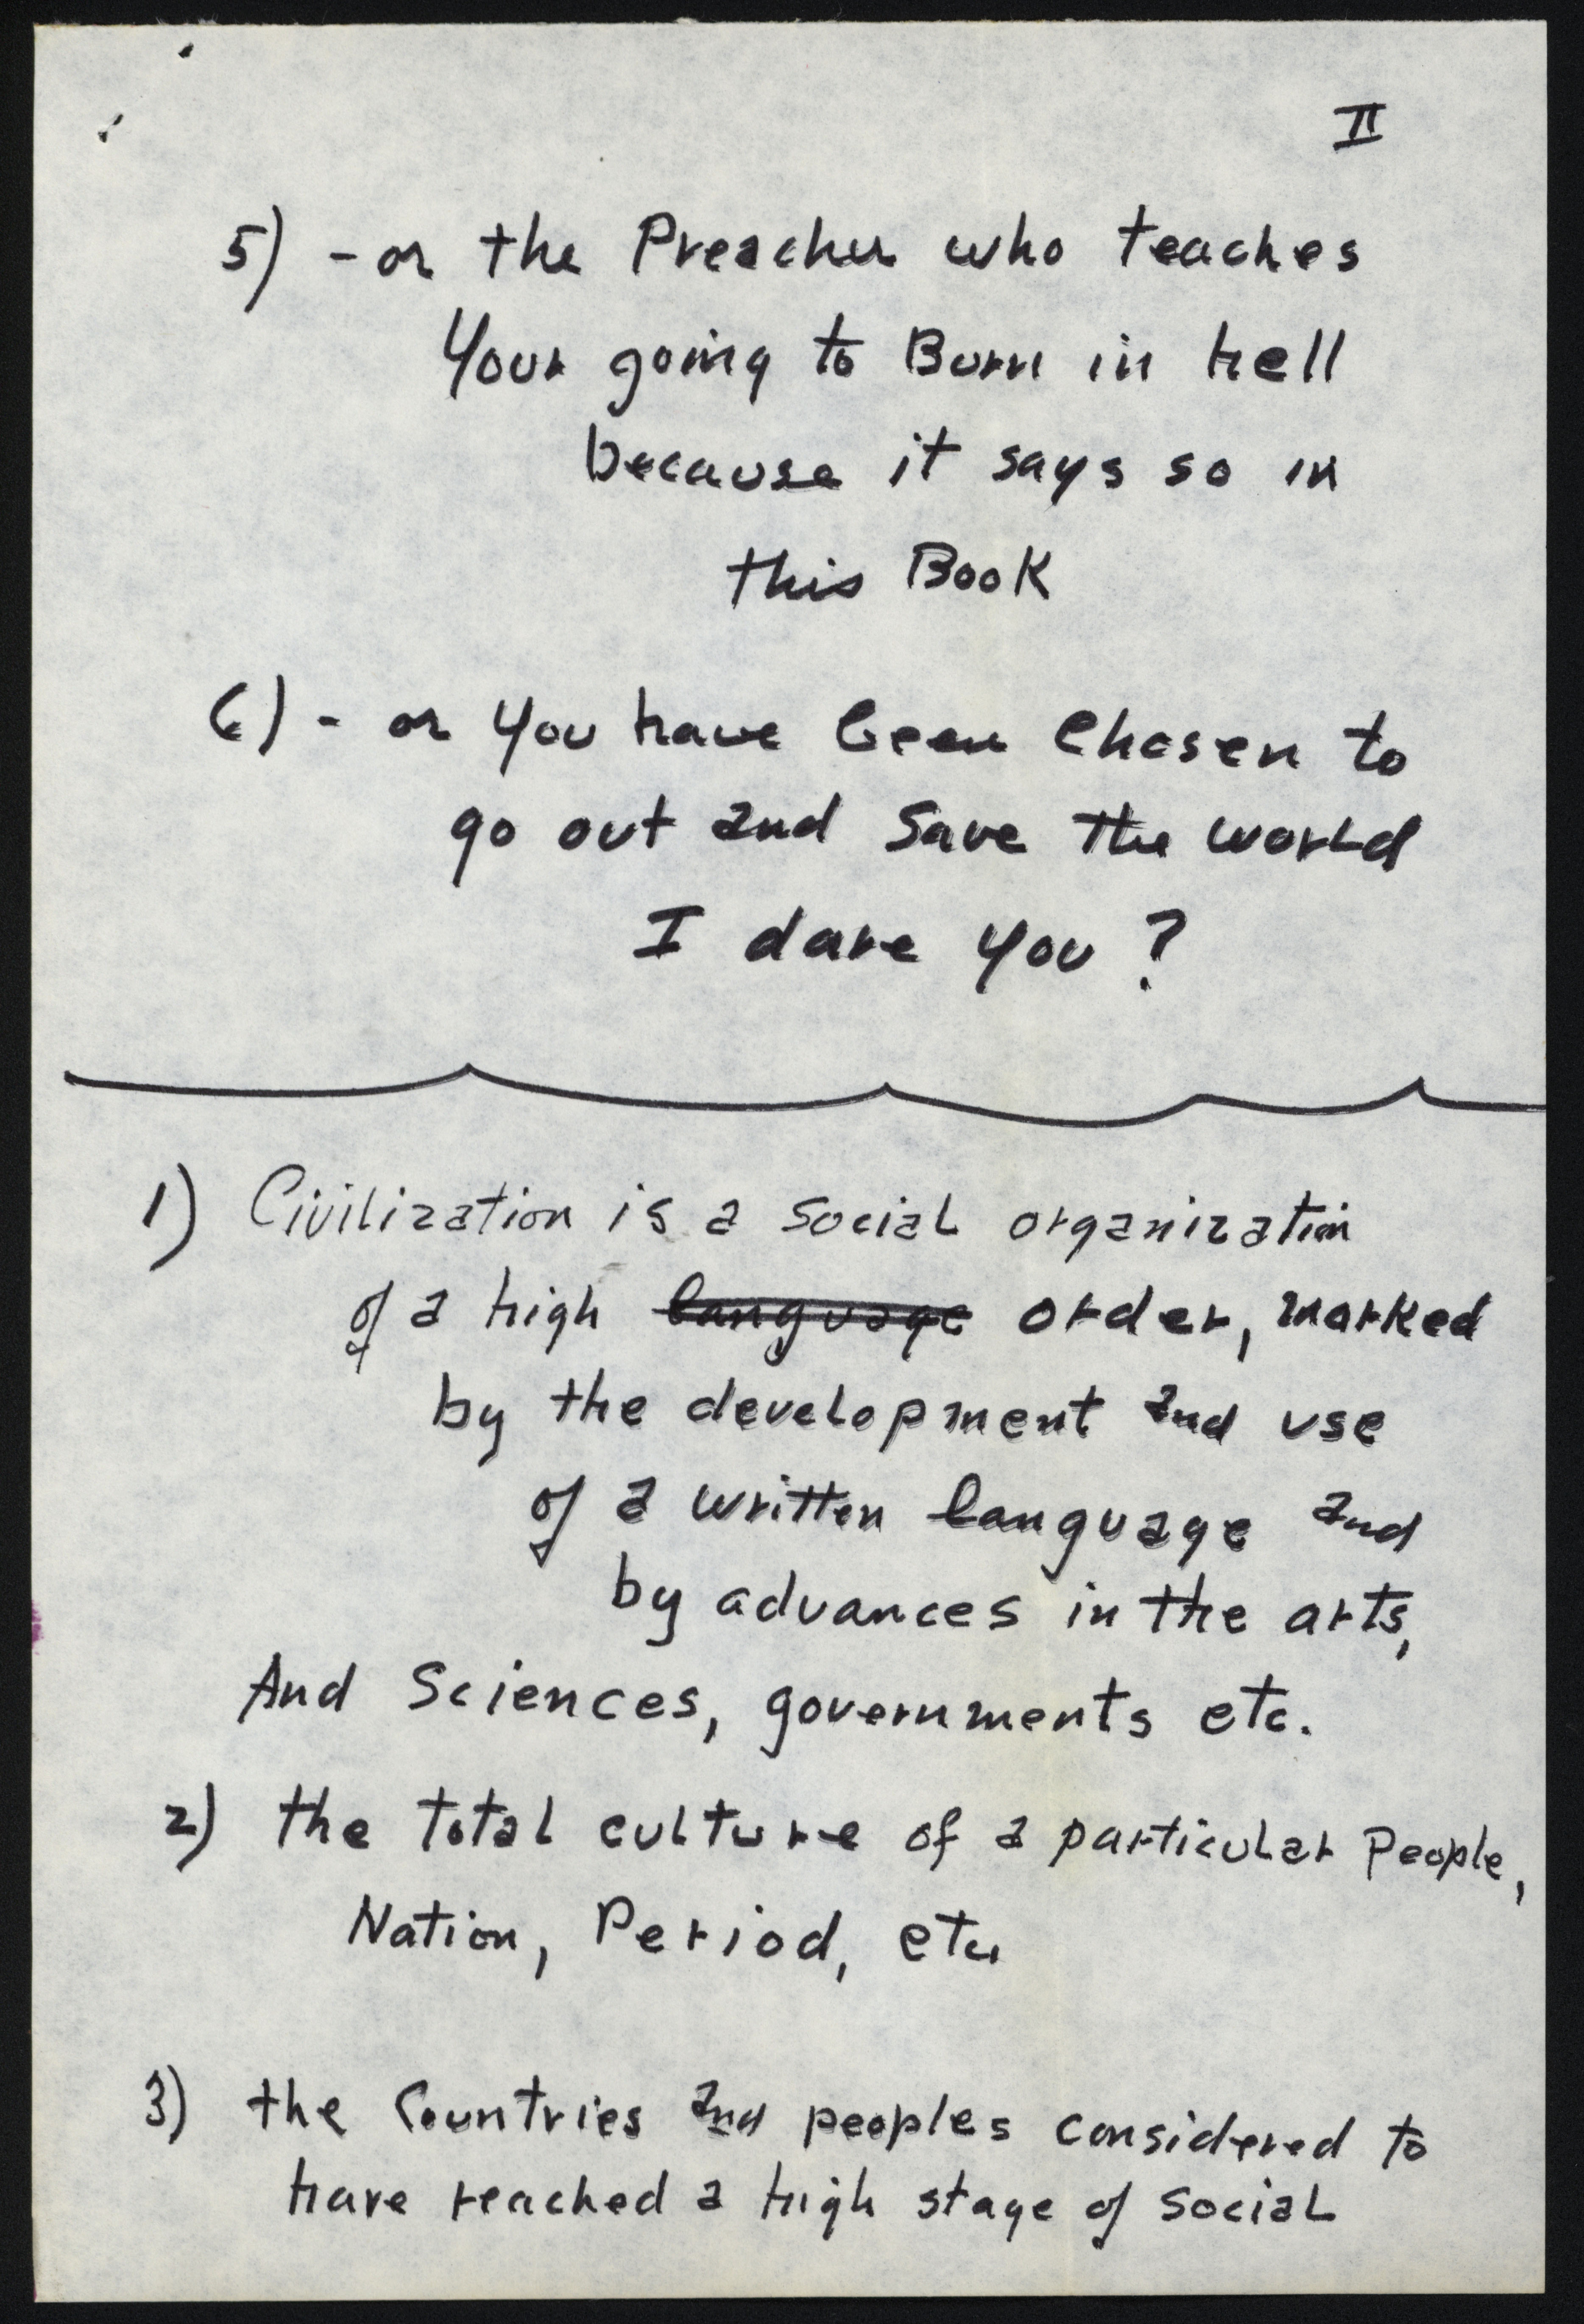 II
5) - or the Preacher who teaches
Your going to Burn in hell
because it says so in
this Book
6) - or You have been Chosen to
go out and Save the world
I dare you ?
1) Civilization is a social organization
of a high ~~language~~ order, marked
by the development and use
of a written language and
by advances in the arts,
And Sciences, governments etc.
2) the total culture of a particular People,
Nation, Period, etc
3) the Countries and peoples considered to
have reached a high stage of social